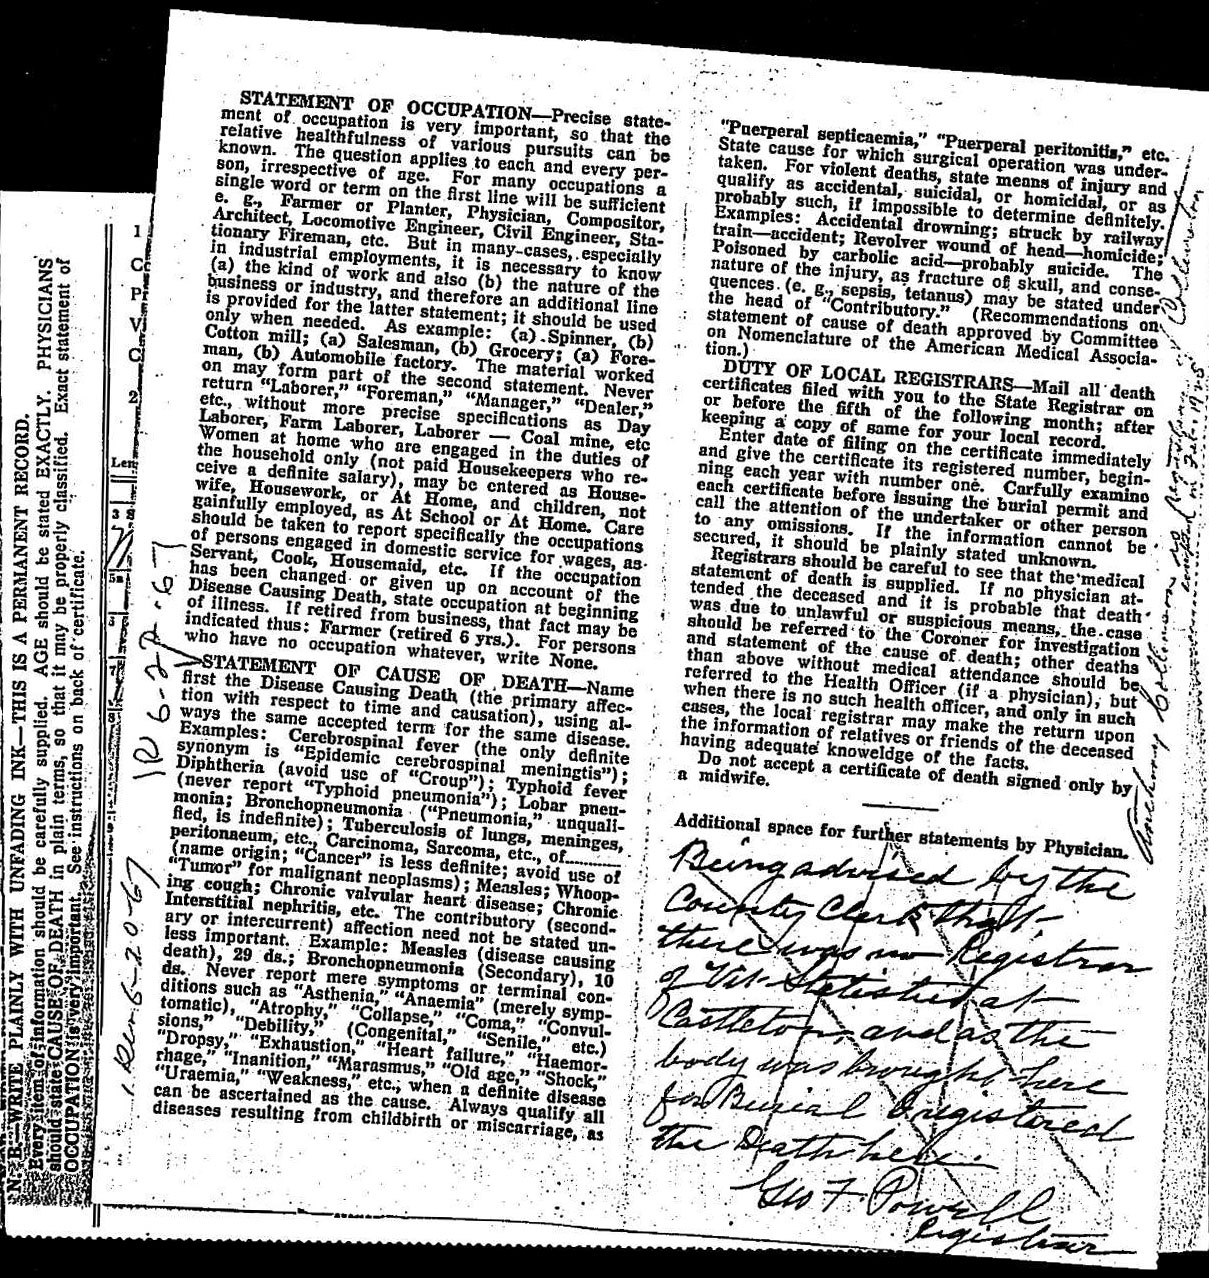 STATEMENT OF OCCUPATION—Precise state-
ment of occupation is very important, so that the
relative healthfulness of various pursuits can be
known. The question applies to each and every per-
son, irrespective of age. For many occupations a
single word or term on the first line will be sufficient
e. g., Farmer or Planter, Physician, Compositor,
Architect, Locomotive Engineer, Civil Engineer, Sta-
tionary Fireman, etc. But in many cases, especially
in industrial employments, it is necessary to know
(a) the kind of work and also (b) the nature of the
business or industry, and therefore an additional line
is provided for the latter statement; it should be used
only when needed. As example: (a) Spinner, (b)
Cotton mill; (a) Salesman, (b) Grocery; (a) Fore-
man, (b) Automobile factory. The material worked
on may form part of the second statement. Never
return "Laborer," "Foreman," "Manager," "Dealer,"
etc., without more precise specifications as Day
Laborer, Farm Laborer, Laborer — Coal mine, etc
Women at home who are engaged in the duties of
the household only (not paid Housekeepers who re-
ceive a definite salary), may be entered as House-
wife, Housework, or At Home, and children, not
gainfully employed, as At School or At Home. Care
should be taken to report specifically the occupations
of persons engaged in domestic service for wages, as
Servant, Cook, Housemaid, etc. If the occupation
has been changed or given up on account of the
Disease Causing Death, state occupation at beginning
of illness. If retired from business, that fact may be
indicated thus: Farmer (retired 6 yrs.). For persons
who have no occupation whatever, write None.
STATEMENT OF CAUSE OF DEATH—Name
first the Disease Causing Death (the primary affec-
tion with respect to time and causation), using al-
ways the same accepted term for the same disease.
Examples: Cerebrospinal fever (the only definite
synonym is "Epidemic cerebrospinal meningtis");
Diphtheria (avoid use of "Croup"); Typhoid fever
(never report "Typhoid pneumonia"); Lobar pneu-
monia; Bronchopneumonia ("Pneumonia," unquali-
fied, is indefinite); Tuberculosis of lungs, meninges,
peritonaeum, etc., Carcinoma, Sarcoma, etc., of
(name origin; "Cancer" is less definite; avoid use of
"Tumor" for malignant neoplasms); Measles; Whoop-
ing cough; Chronic valvular heart disease; Chronic
Interstitial nephritis, etc. The contributory (second-
ary or intercurrent) affection need not be stated un-
less important. Example: Measles (disease causing
death), 29 ds.; Bronchopneumonia (Secondary), 10
ds. Never report mere symptoms or terminal con-
ditions such as "Asthenia," "Anaemia" (merely symp-
tomatic), "Atrophy," "Collapse," "Coma," "Convul-
sions," "Debility," (Congenital," "Senile," etc.)
"Dropsy," "Exhaustion," "Heart failure," "Haemor-
rhage," "Inanition," "Marasmus," "Old age," "Shock,"
"Uraemia," "Weakness," etc., when a definite disease
can be ascertained as the cause. Always qualify all
diseases resulting from childbirth or miscarriage, as
"Puerperal septicaemia," "Puerperal peritonitis," etc.
State cause for which surgical operation was under-
taken. For violent deaths, state means of injury and
qualify as accidental, suicidal, or homicidal, or as
probably such, if impossible to determine definitely.
Examples: Accidental drowning; struck by railway
train—accident; Revolver wound of head—homicide;
Poisoned by carbolic acid—probably suicide. The
nature of the injury, as fracture of skull, and conse-
quences (e. g., sepsis, tetanus) may be stated under
the head of "Contributory." (Recommendations on
statement of cause of death approved by Committee
on Nomenclature of the American Medical Associa-
tion.)
DUTY OF LOCAL REGISTRARS—Mail all death
certificates filed with you to the State Registrar on
or before the fifth of the following month; after
keeping a copy of same for your local record.
Enter date of filing on the certificate immediately
and give the certificate its registered number, begin-
ning each year with number one. Carfully examine
each certificate before issuing the burial permit and
call the attention of the undertaker or other person
to any omissions. If the information cannot be
secured, it should be plainly stated unknown.
Registrars should be careful to see that the medical
statement of death is supplied. If no physician at-
tended the deceased and it is probable that death
was due to unlawful or suspicious means, the case
should be referred to the Coroner for investigation
and statement of the cause of death; other deaths
than above without medical attendance should be
referred to the Health Officer (if a physician), but
when there is no such health officer, and only in such
cases, the local registrar may make the return upon
the information of relatives or friends of the deceased
having adequate knoweldge of the facts.
Do not accept a certificate of death signed only by
a midwife.
Additional space for further statements by Physician.
Being advised by the
County Clerk that
there was no Registrar
of Vit Statistics at
Castleton, and as the
body was brought here
for Burial I registered
the Death here.
Geo F Powell
Registrar
N. B.—WRITE PLAINLY WITH UNFADING INK—THIS IS A PERMANENT RECORD.
Every item of information should be carefully supplied. AGE should be stated EXACTLY. PHYSICIANS
should state CAUSE OF DEATH in plain terms, so that it may be properly classified. Exact statement of
OCCUPATION is very important. See instructions on back of certificate.
6-20-67
R 6-29-67
1
2
Len
3
5a
7
8
9